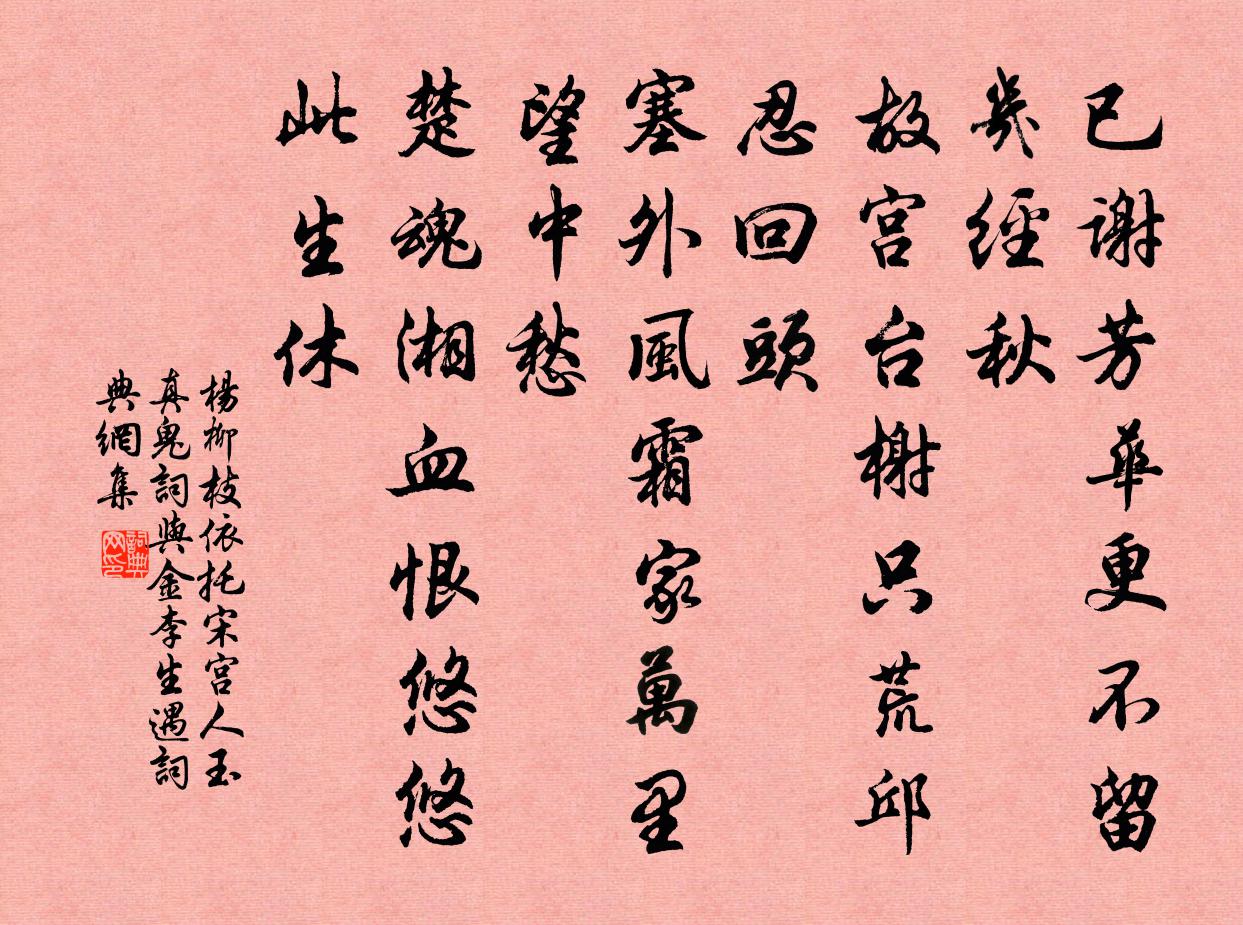 已謝芳華更不留
幾經秋
故宮台榭只荒邱
忍回頭
塞外風霜家萬里
望中愁
楚魂湘血恨悠悠
此生休
楊柳枝依托宋宮人玉
真鬼詞與金李生遇詞
典網集
詞典
网印